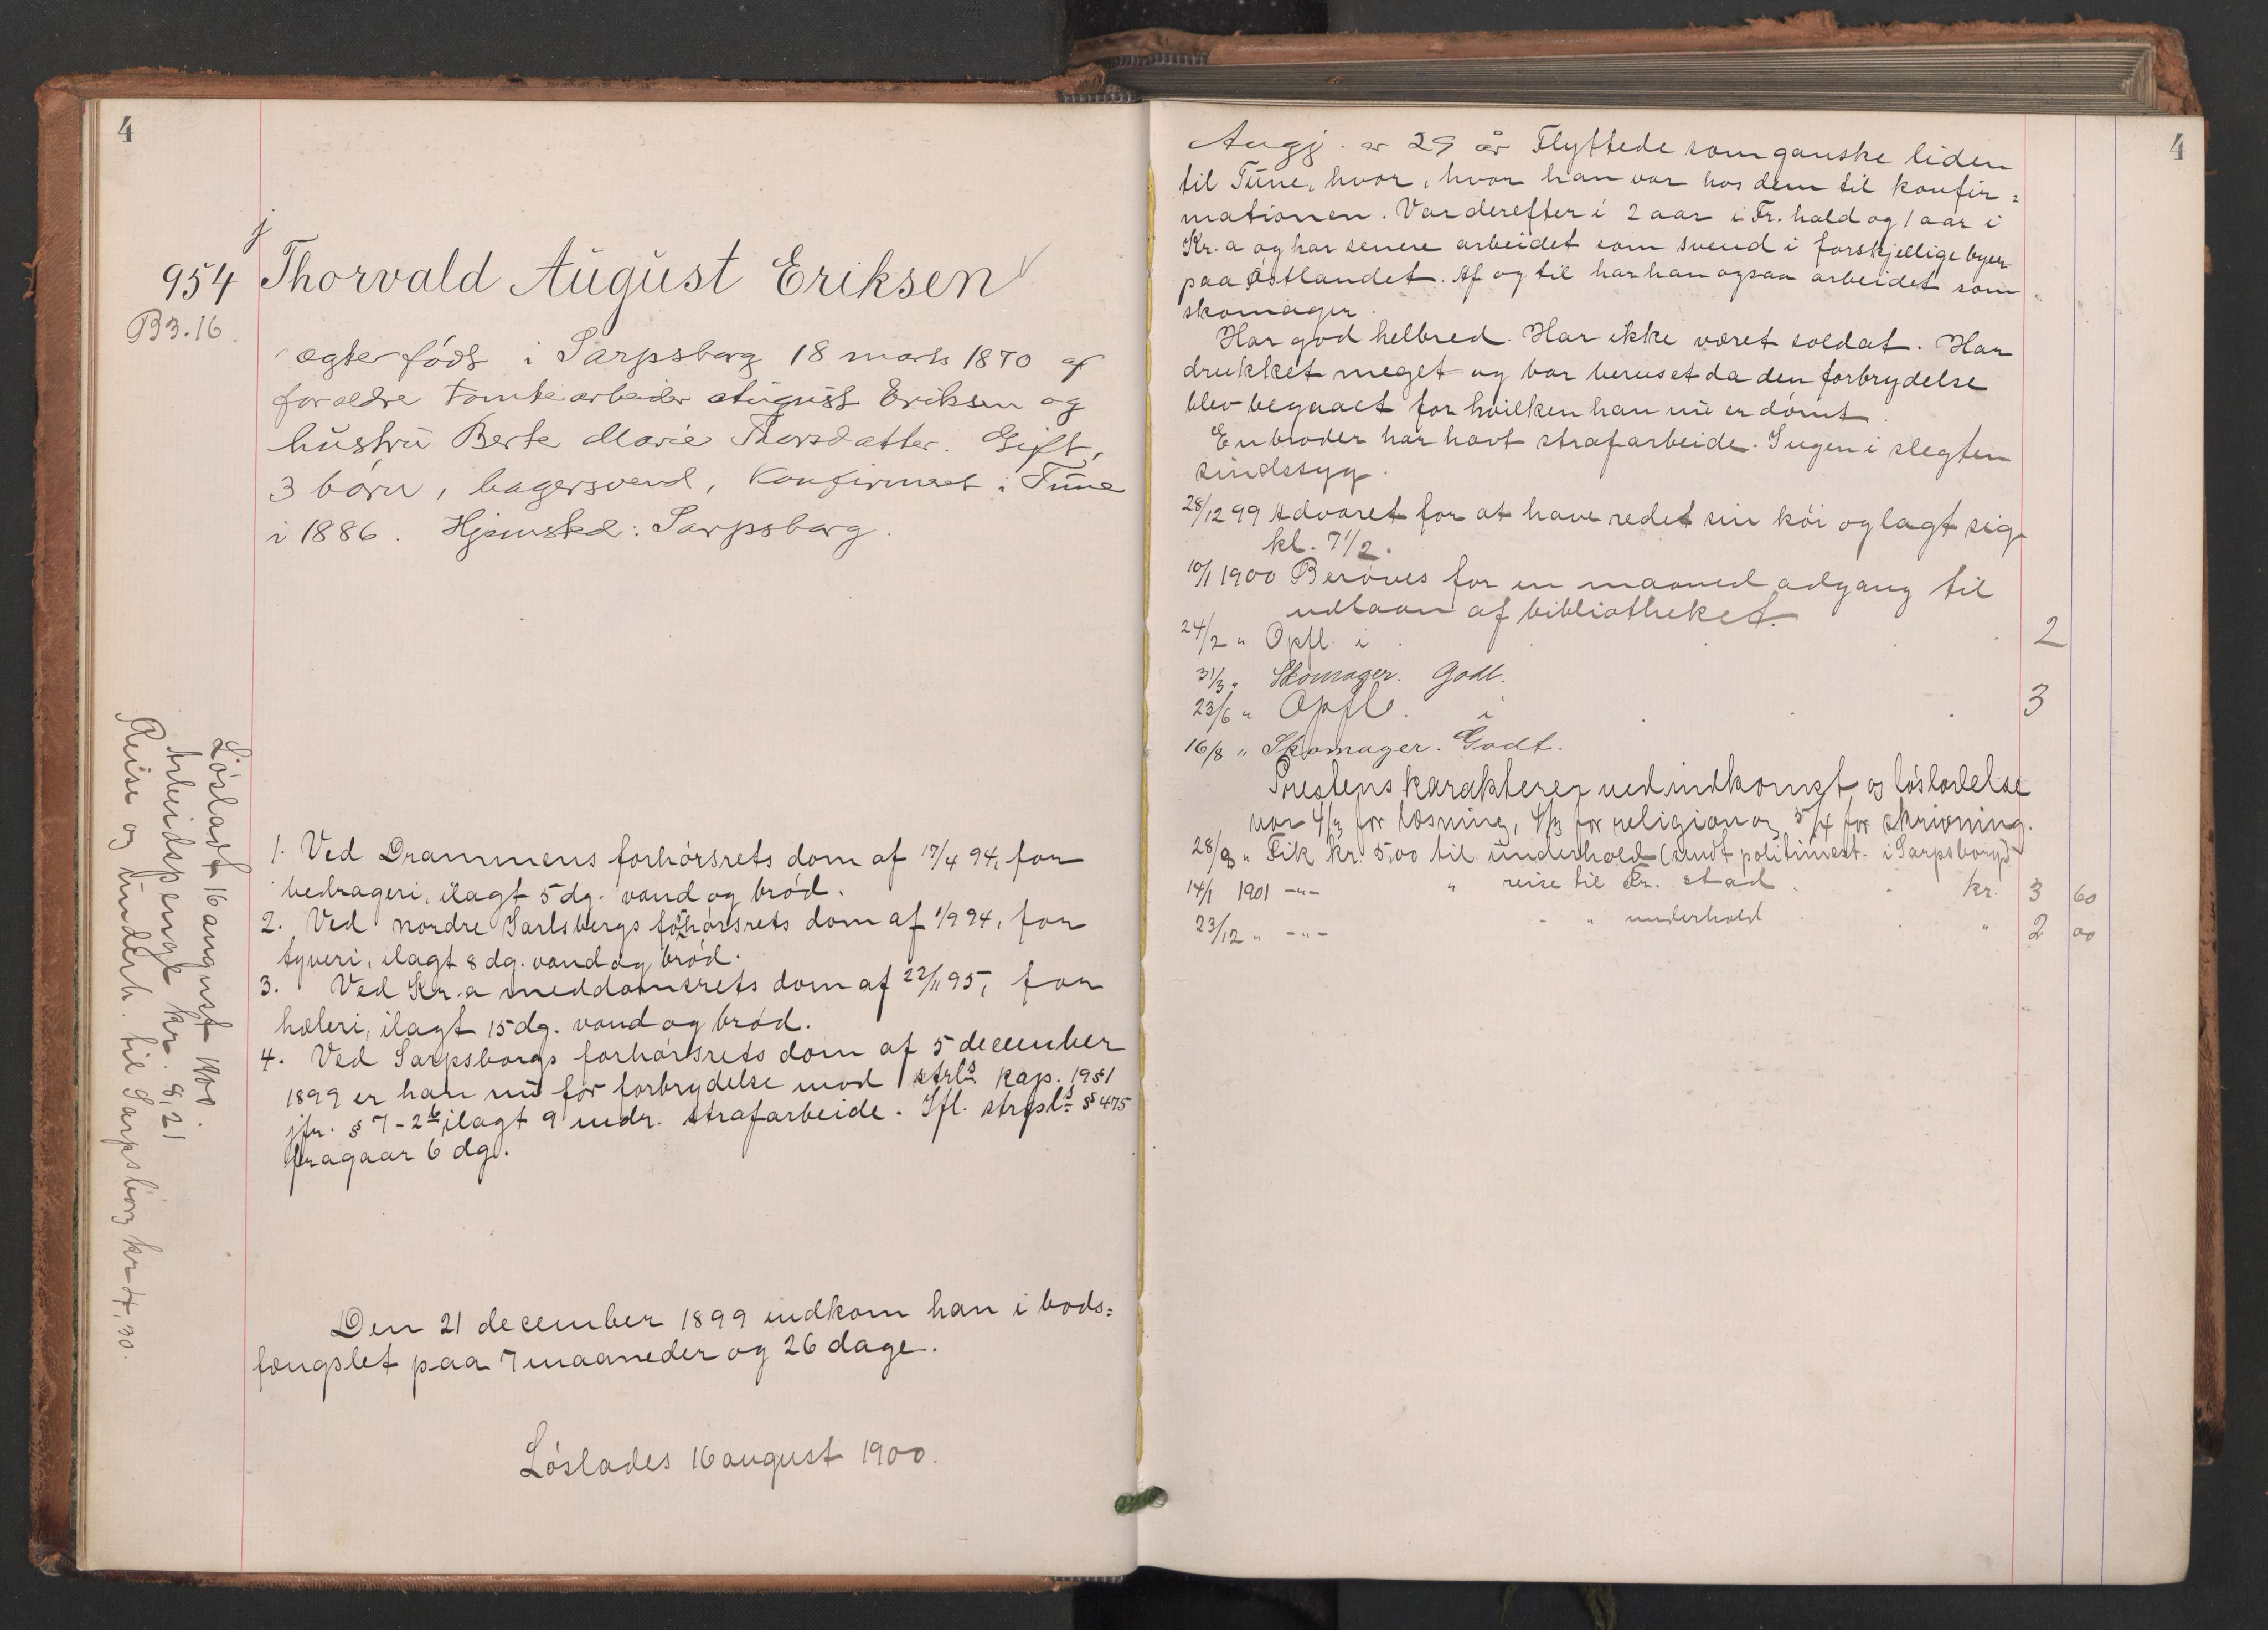 4
954 Thorvald August Eriksen
B3.16.
ægte født i Sarpsborg 18 marts 1870 af
forældre Tomtearbeider August Eriksen og
hustru Berte Marie Thorsdatter. Gift,
3 børn, bagersvend, Konfirmeret i Tune
i 1886. Hjemsted: Sarpsborg.
1. Ved Drammens forhørsrets dom af 17/4 94, for
bedrageri, ilagt 5 dg. vand og brød.
2. Ved nordre Jarlsbergs forhørsrets dom af 1/9 94, for
tyveri, ilagt 8 dg. vand og brød.
3. Ved Kr.a meddomsrets dom af 22/11 95, for
hæleri, ilagt 15 dg. vand og brød.
4. Ved Sarpsborgs forhørsrets dom af 5 december
1899 er han nu for forbrydelse mod strls. kap. 19 § 1
jfr. § 7 - 2 ilagt 9 mdr. strafarbeide. Ifl. strpls § 475
fragaar 6 dg.
Den 21 december 1899 indkom han i bods=
fængslet paa 7 maaneder og 26 dage.
Løslades 16 august 1900.
Løsladt 16 august 1900.
Arbeidspenge kr. 8,21
Reise og underh. til Sarpsborg kr 4,30.
4
Angj. er 29 år Flyttede som ganske liden
til Tune, hvor, hvor han var hos dem til konfir=
mationen. Var derefter i 2 aar i Fr.hald og 1 aar i
Kr.a og har senere arbeidet som svend i forskjellige byer
paa Østlandet. Af og til har han ogsaa arbeidet som
skomager.
Har god helbred. Har ikke været soldat. Har
drukket meget og var beruset da den forbrydelse
blev begaaet for hvilken han nu er dømt.
En broder har havt strafarbeide. Ingen i slegten
sindssyg.
28/12 99 Advaret for at have redet sin køi og lagt sig
kl. 7 1/2.
10/1 1900 Berøves for en maaned adgang til
udlaan af bibliotheket.
24/2 " Opfl. i . . . 2
31/3 " Skomager. Godt.
23/6 " Opfl. i . . . 3
16/8 " Skomager. Godt.
Prestens karakterer ved indkomst og løsladelse
var 4/3 for læsning, 4/3 for religion og 5/4 for skrivning.
28/8 " Fik kr. 5,00 til underhold (sendt politimest. i Sarpsborg)
14/1 1901 -"- " reise til Fr.stad . . kr. 3 60
23/12 " -"- - " underhold . . " 2 00